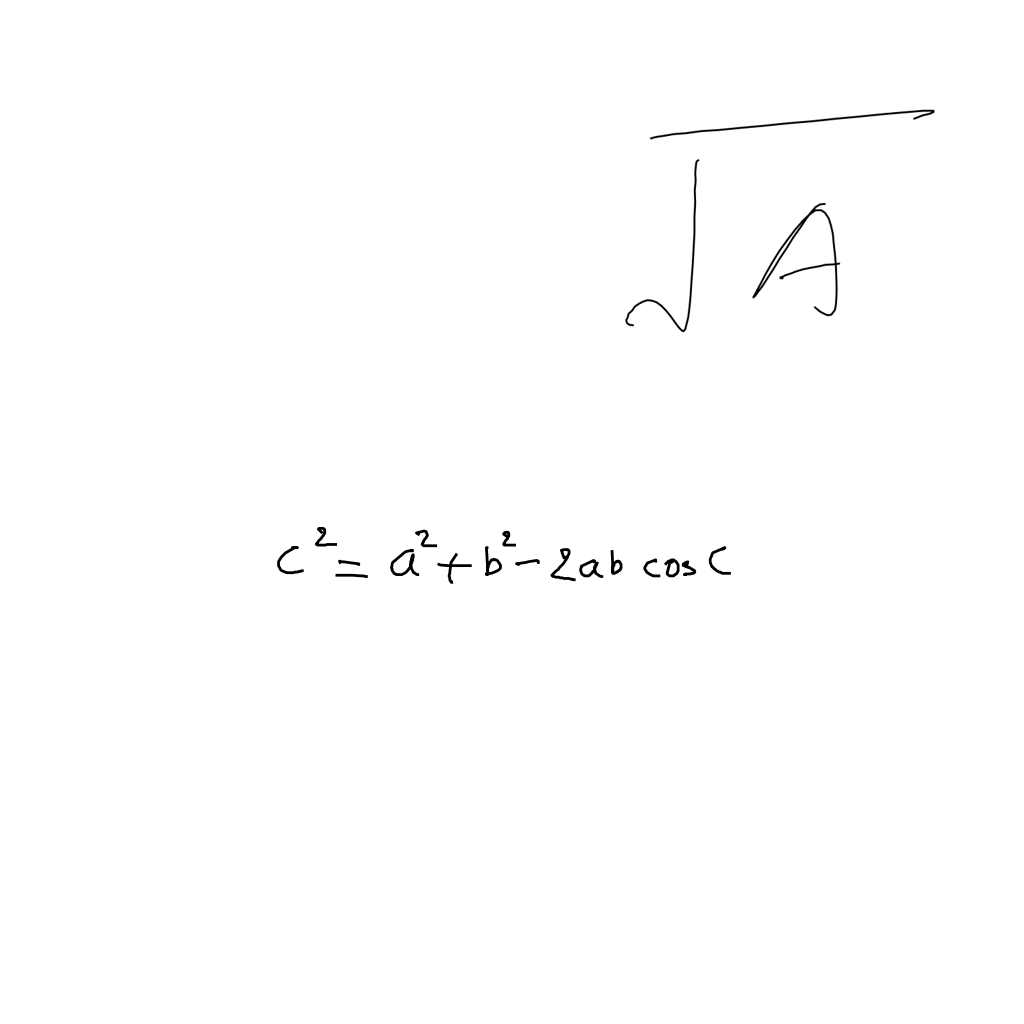 √A
c² = a² + b² - 2ab cos C